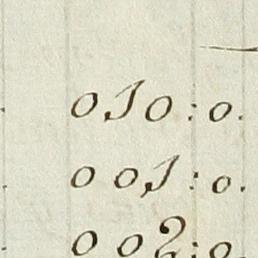 010:0.
001:0.
002:0.